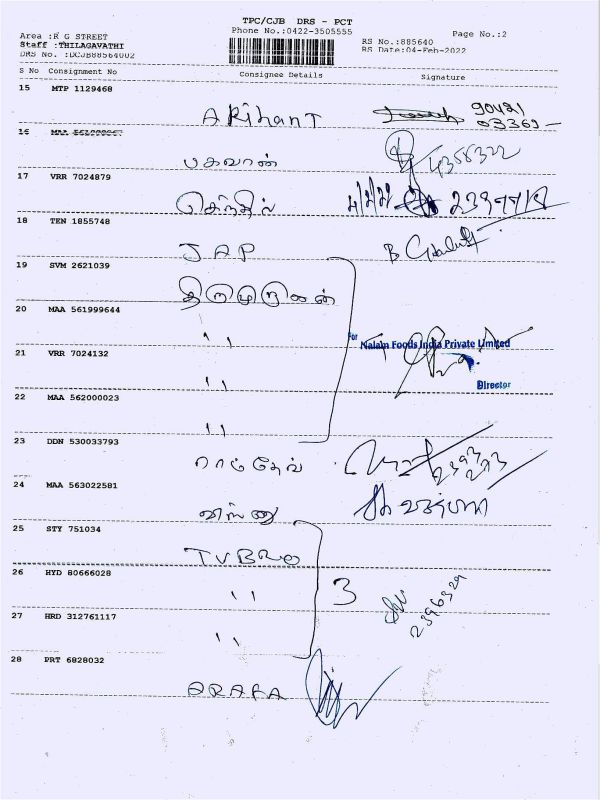 TPC/CJB DRS - PCT
Area :R G STREET Phone No.:0422-3505555 Page No.:2
Staff :THILAGAVATHI RS No.:885640
DRS No. :DCJB88564002 RS Date:04-Feb-2022
S No Consignment No Consignee Details Signature
15 MTP 1129468
ARihanT 90421
03369
16 MAA
பகவான் 4388322
17 VRR 7024879
செந்தில் 4/2/22
18 TEN 1855748
JAP B
19 SVM 2621039
20 MAA 561999644
"
For Nalam Foods India Private Limited
21 VRR 7024132
" Director
22 MAA 562000023
"
23 DDN 530033793
ராம்தேவ் 2393
273
24 MAA 563022581
விஷ்ணு
25 STY 751034
TVBRO
26 HYD 80666028
" 3 2396329
27 HRD 312761117
"
28 PRT 6828032
ARAFA